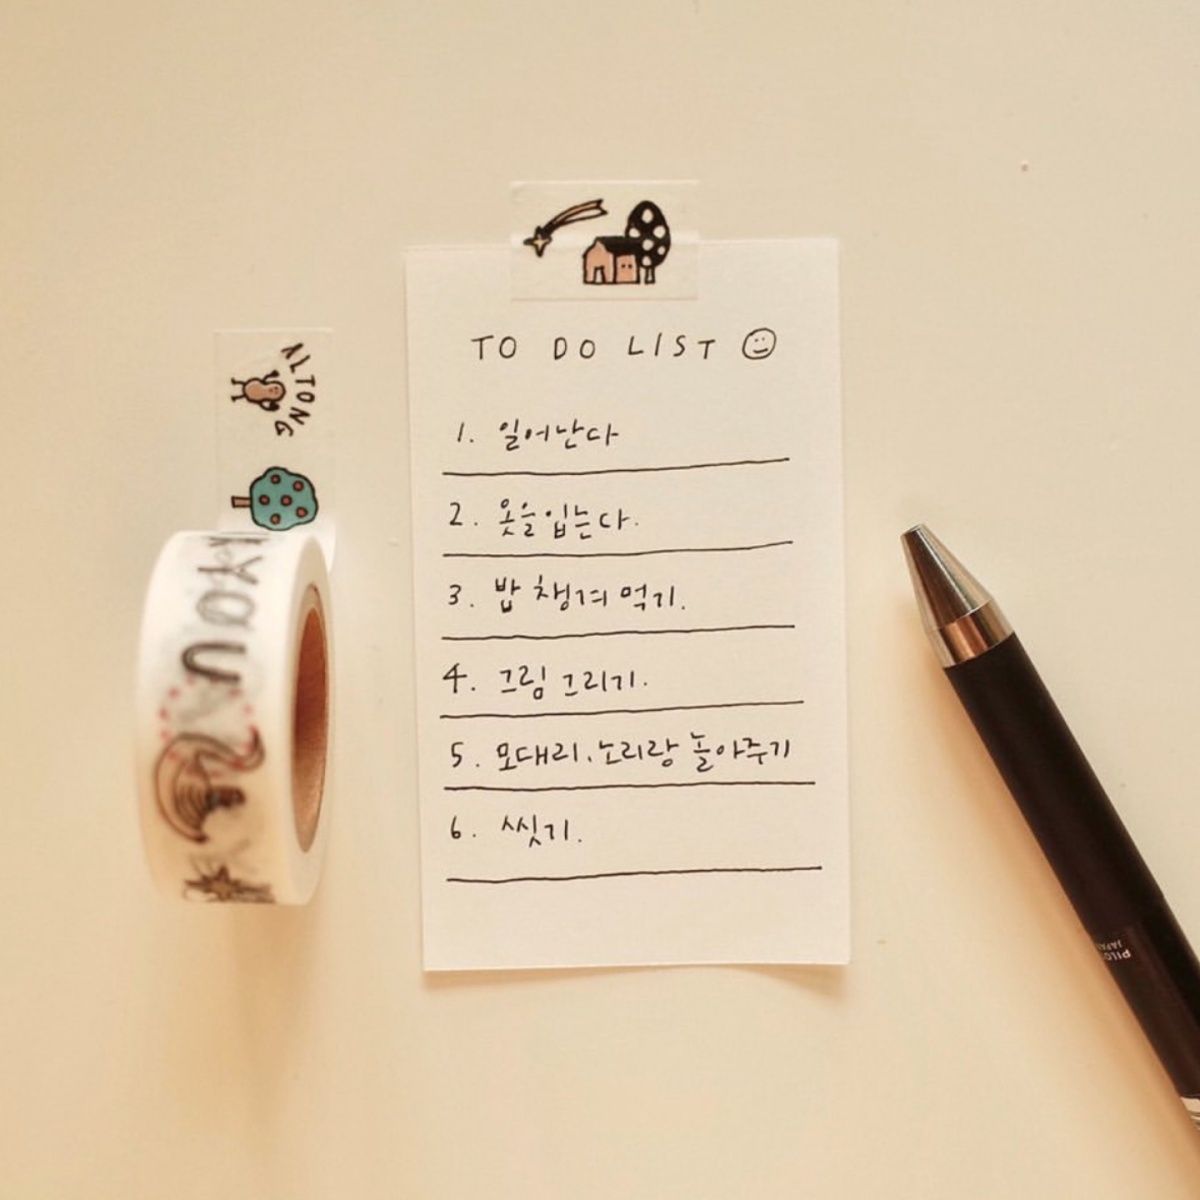 TO DO LIST
1. 일어난다
2. 옷을입는다.
3. 밥 챙겨 먹기.
4. 그림 그리기.
5. 모대리.노리랑 놀아주기
6. 씻기.
ALTONG
YOU
PILO
JAPAN